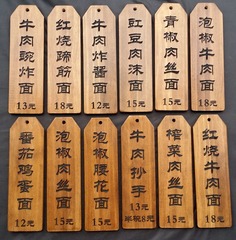 牛肉豌炸面
13元
红烧蹄筋面
18元
牛肉炸酱面
12元
豇豆肉沫面
15元
青椒肉丝面
15元
泡椒牛肉面
18元
番茄鸡蛋面
12元
泡椒肉丝面
15元
泡椒腰花面
15元
牛肉抄手
13元
半碗8元
榨菜肉丝面
15元
红烧牛肉面
18元